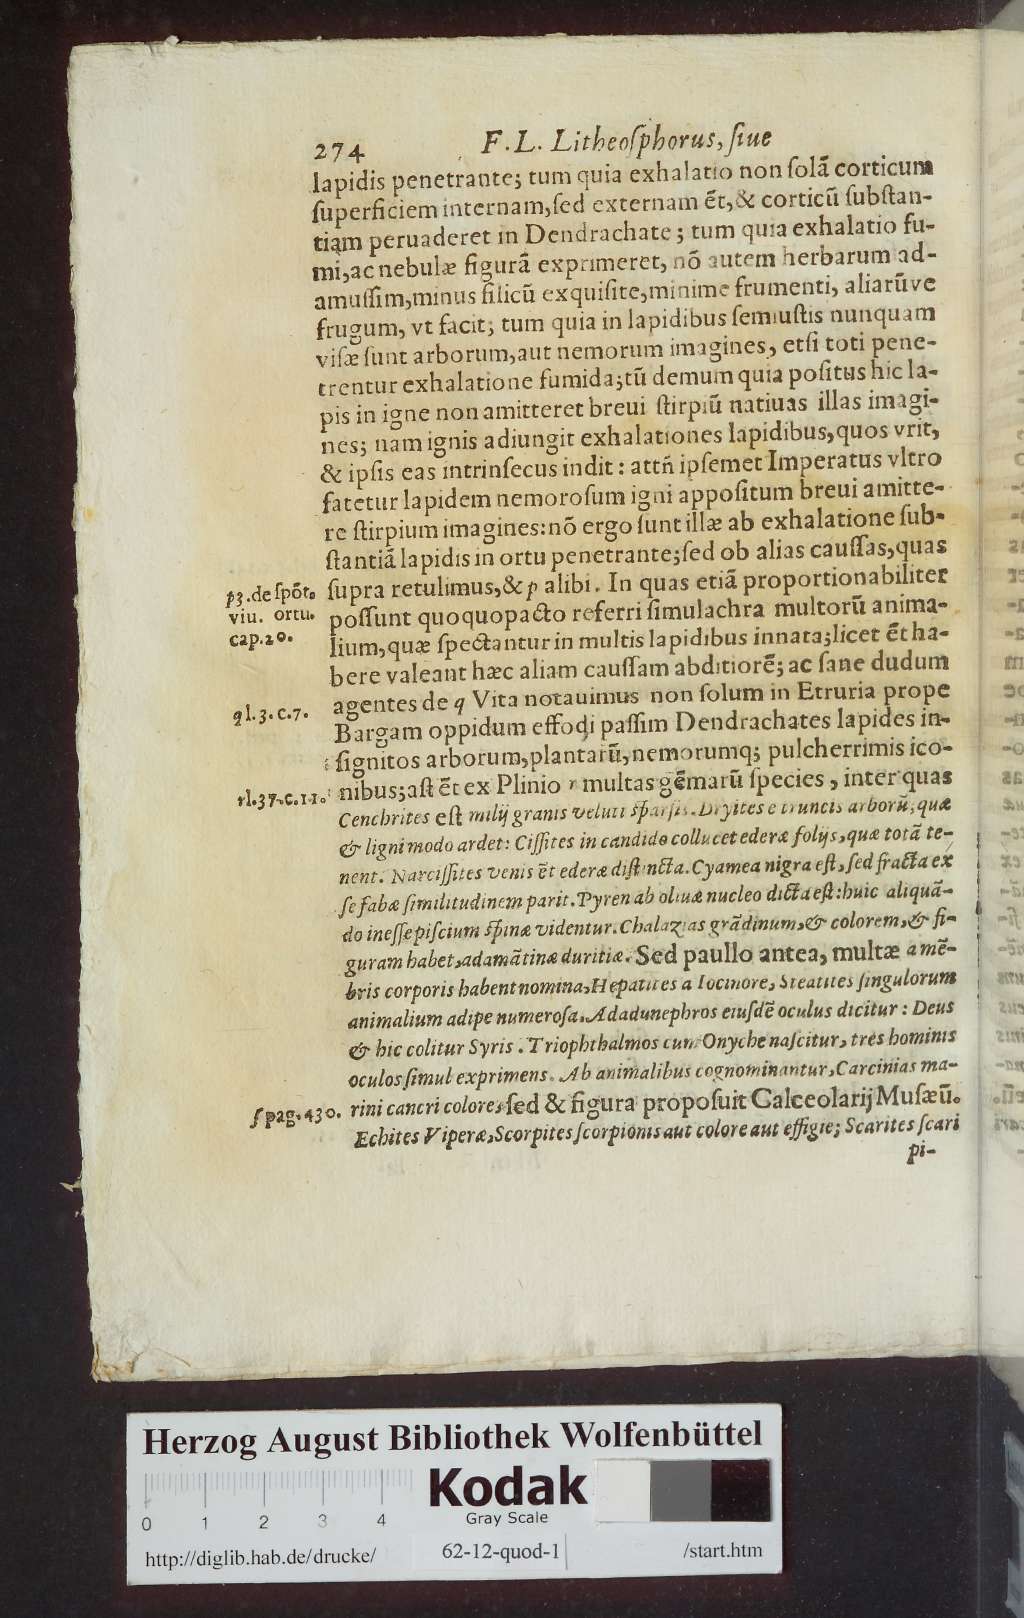 274 F. L. Litheoſphorus, ſiue
lapidis penetrante; tum quia exhalatio non ſolã corticum
ſuperficiem internam, ſed externam ẽt, & corticũ ſubſtan-
tiam peruaderet in Dendrachate; tum quia exhalatio fu-
mi, ac nebulæ figurã exprimeret, nõ autem herbarum ad-
amuſſim, minus ſilicũ exquiſite, minime frumenti, aliarũve
frugum, vt facit; tum quia in lapidibus ſemiuſtis nunquam
viſæ ſunt arborum, aut nemorum imagines, etſi toti pene-
trentur exhalatione fumida; tũ demum quia poſitus hic la-
pis in igne non amitteret breui ſtirpiũ natiuas illas imagi-
nes; nam ignis adiungit exhalationes lapidibus, quos vrit,
& ipſis eas intrinſecus indit: attñ ipſemet Imperatus vltro
fatetur lapidem nemoroſum igni appoſitum breui amitte-
re ſtirpium imagines: nõ ergo ſunt illæ ab exhalatione ſub-
ſtantiã lapidis in ortu penetrante; ſed ob alias cauſſas, quas
p 3. de ſpõt. viu. ortu. cap. 20.
ſupra retulimus, & p alibi. In quas etiã proportionabiliter
poſſunt quoquopacto referri ſimulachra multorũ anima-
lium, quæ ſpectantur in multis lapidibus innata; licet ẽt ha-
bere valeant hæc aliam cauſſam abditiorẽ; ac ſane dudum
q l. 3. c. 7.
agentes de q Vita notauimus non ſolum in Etruria prope
Bargam oppidum effodi paſſim Dendrachates lapides in-
ſignitos arborum, plantarũ, nemorumq; pulcherrimis ico-
r l. 37. c. 11.
nibus; aſt ẽt ex Plinio r multas gẽmarũ ſpecies, inter quas
Cenchrites eſt milij granis veluti ſparſis. Dryites e truncis arborũ, quæ
& ligni modo ardet: Ciſſites in candido collucet ederæ folijs, quæ totã te-
nent. Narciſſites venis ẽt ederæ diſtincta. Cyamea nigra eſt, ſed fracta ex
ſe fabæ ſimilitudinem parit. Pyren ab oliuæ nucleo dicta eſt: huic aliquã-
do ineſſe piſcium ſpinæ videntur. Chalazias grãdinum, & colorem, & fi-
guram habet, adamãtinæ duritiæ. Sed paullo antea, multæ a mẽ-
bris corporis habent nomina, Hepatites a Iocinore, Steatites ſingulorum
animalium adipe numeroſa. Adadunephros eiuſdẽ oculus dicitur: Deus
& hic colitur Syris. Triophthalmos cum Onyche naſcitur, tres hominis
oculos ſimul exprimens. Ab animalibus cognominantur, Carcinias ma-
ſ pag. 430.
rini cancri colore, ſed & figura propoſuit Calceolarij Muſæũ.
Echites Viperæ, Scorpites ſcorpionis aut colore aut effigie; Scarites ſcari
pi-
Herzog August Bibliothek Wolfenbüttel
Kodak
Gray Scale
0 1 2 3 4
http://diglib.hab.de/drucke/ 62-12-quod-1 /start.htm